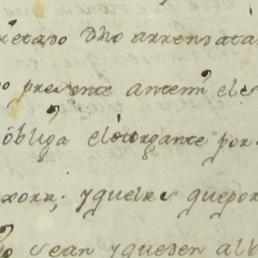 retado Dho arrendata
o presente antem el es
obliga el otorgante por
y quedre quepor
sean y queden al